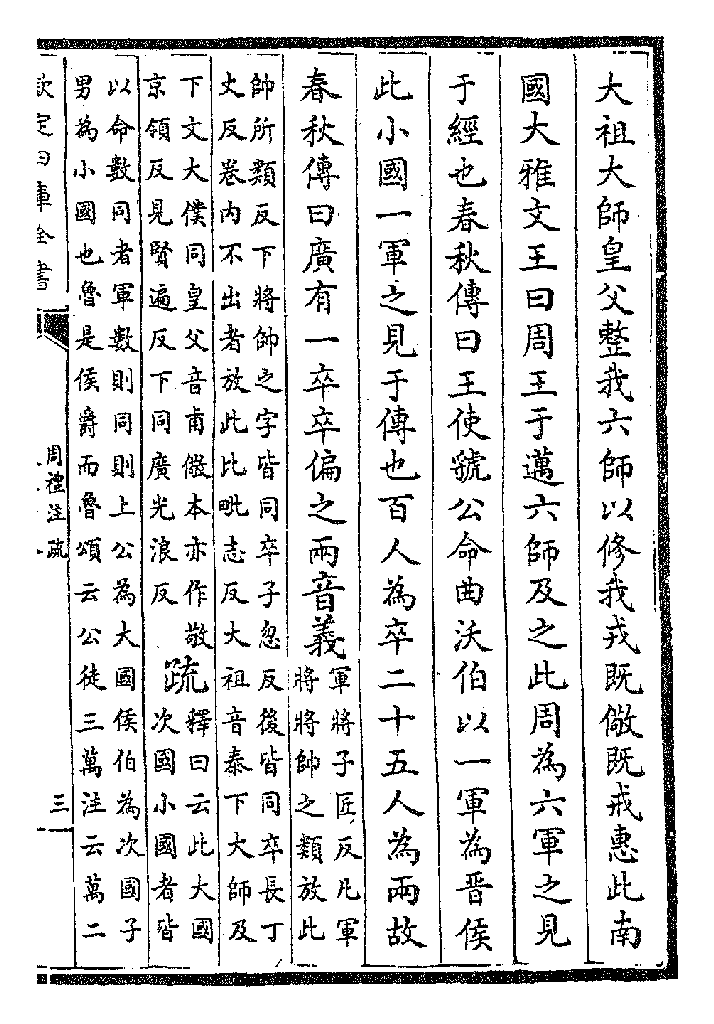 大祖大師皇父整我六師以修我戎既儆既戒惠此南
國大雅文王曰周王于邁六師及之此周為六軍之見
于經也春秋傳曰王使虢公命曲沃伯以一軍為晉侯
此小國一軍之見于傳也百人為卒二十五人為兩故
春秋傳曰廣有一卒卒偏之兩音義
軍將子匠反凡軍
將將帥之類放此
帥所類反下將帥之字皆同卒子忽反後皆同卒長丁
丈反卷内不出者放此比毗志反大祖音泰下大師及
下文大僕同皇父音甫儆本亦作敬
京領反見賢遍反下同廣光浪反
疏
釋曰云此大國
次國小國者皆
以命數同者軍數則同則上公為大國侯伯為次國子
男為小國也魯是侯爵而魯頌云公徒三萬注云萬二
欽定四庫全書
周禮注疏
三